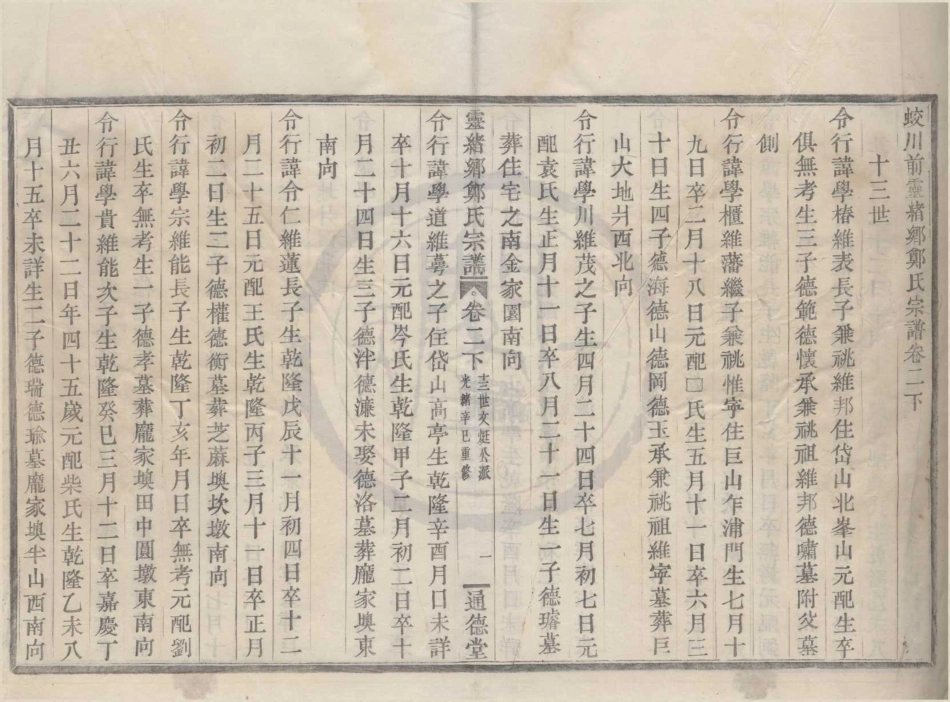 蛟川前靈緒鄉鄭氏宗譜卷二下
十三世
令行諱學椿維表長子兼祧維邦住岱山北峯山元配生卒
俱無考生三子德範德懷承兼祧祖維邦德嘯墓附父墓
創
令行諱學櫃維藩繼子兼祧惟寧住巨山乍浦門生七月十
九日卒二月十八日元配□氏生五月十一日卒六月三
十日生四子德海德山德岡德玉承兼祧祖維寧墓葬巨
山大地爿西北向
令行諱學川維茂之子生四月二十四日卒七月初七日元
配袁氏生正月十二日卒八月二十一日生一子德璿墓
葬住宅之南金家園南向
靈緒鄉鄭氏宗譜 卷二下 十三世文煃公派 光緒辛巳重修 一 通德堂
令行諱學道維蕚之子住岱山高亭生乾隆辛酉月日未詳
卒十月十六日元配岑氏生乾隆甲子二月初二日卒十
月二十四日生三子德泮德濂未娶德洛墓葬龎家墺東
南向
令行諱令仁維蓮長子生乾隆戊辰十一月初四日卒十二
月二十五日元配王氏生乾隆丙子三月十一日卒正月
初二日生二子德權德衡墓葬芝蔴墺坎墩南向
令行諱學宗維能長子生乾隆丁亥年月日卒無考元配劉
氏生卒無考生一子德孝墓葬龎家墺田中圓墩東南向
令行諱學貴維能次子生乾隆癸巳三月十二日卒嘉慶丁
丑六月二十二日年四十五歲元配柴氏生乾隆乙未八
月十五卒未詳生二子德瑞德瑜墓龎家墺半山西南向